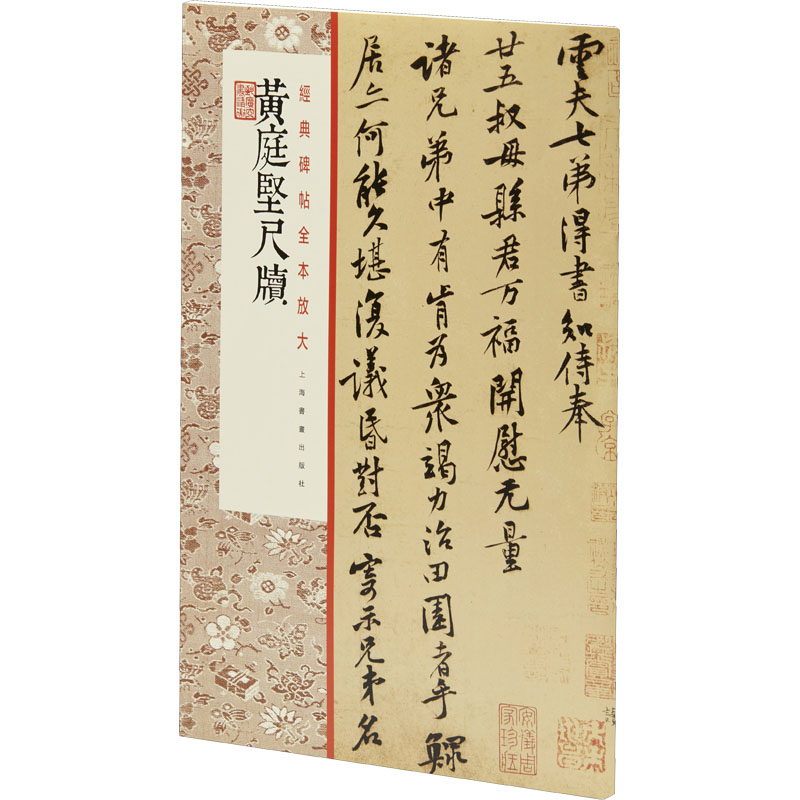 雲夫七弟得書知侍奉
廿五叔母縣君万福開慰无量
諸兄弟中有肯为衆竭力治田園者乎鰥
居亦何能久堪復議昏對否寄示兄弟名
安儀周家珍藏
經典碑帖全本放大
上海書畫出版社
黃庭堅尺牘